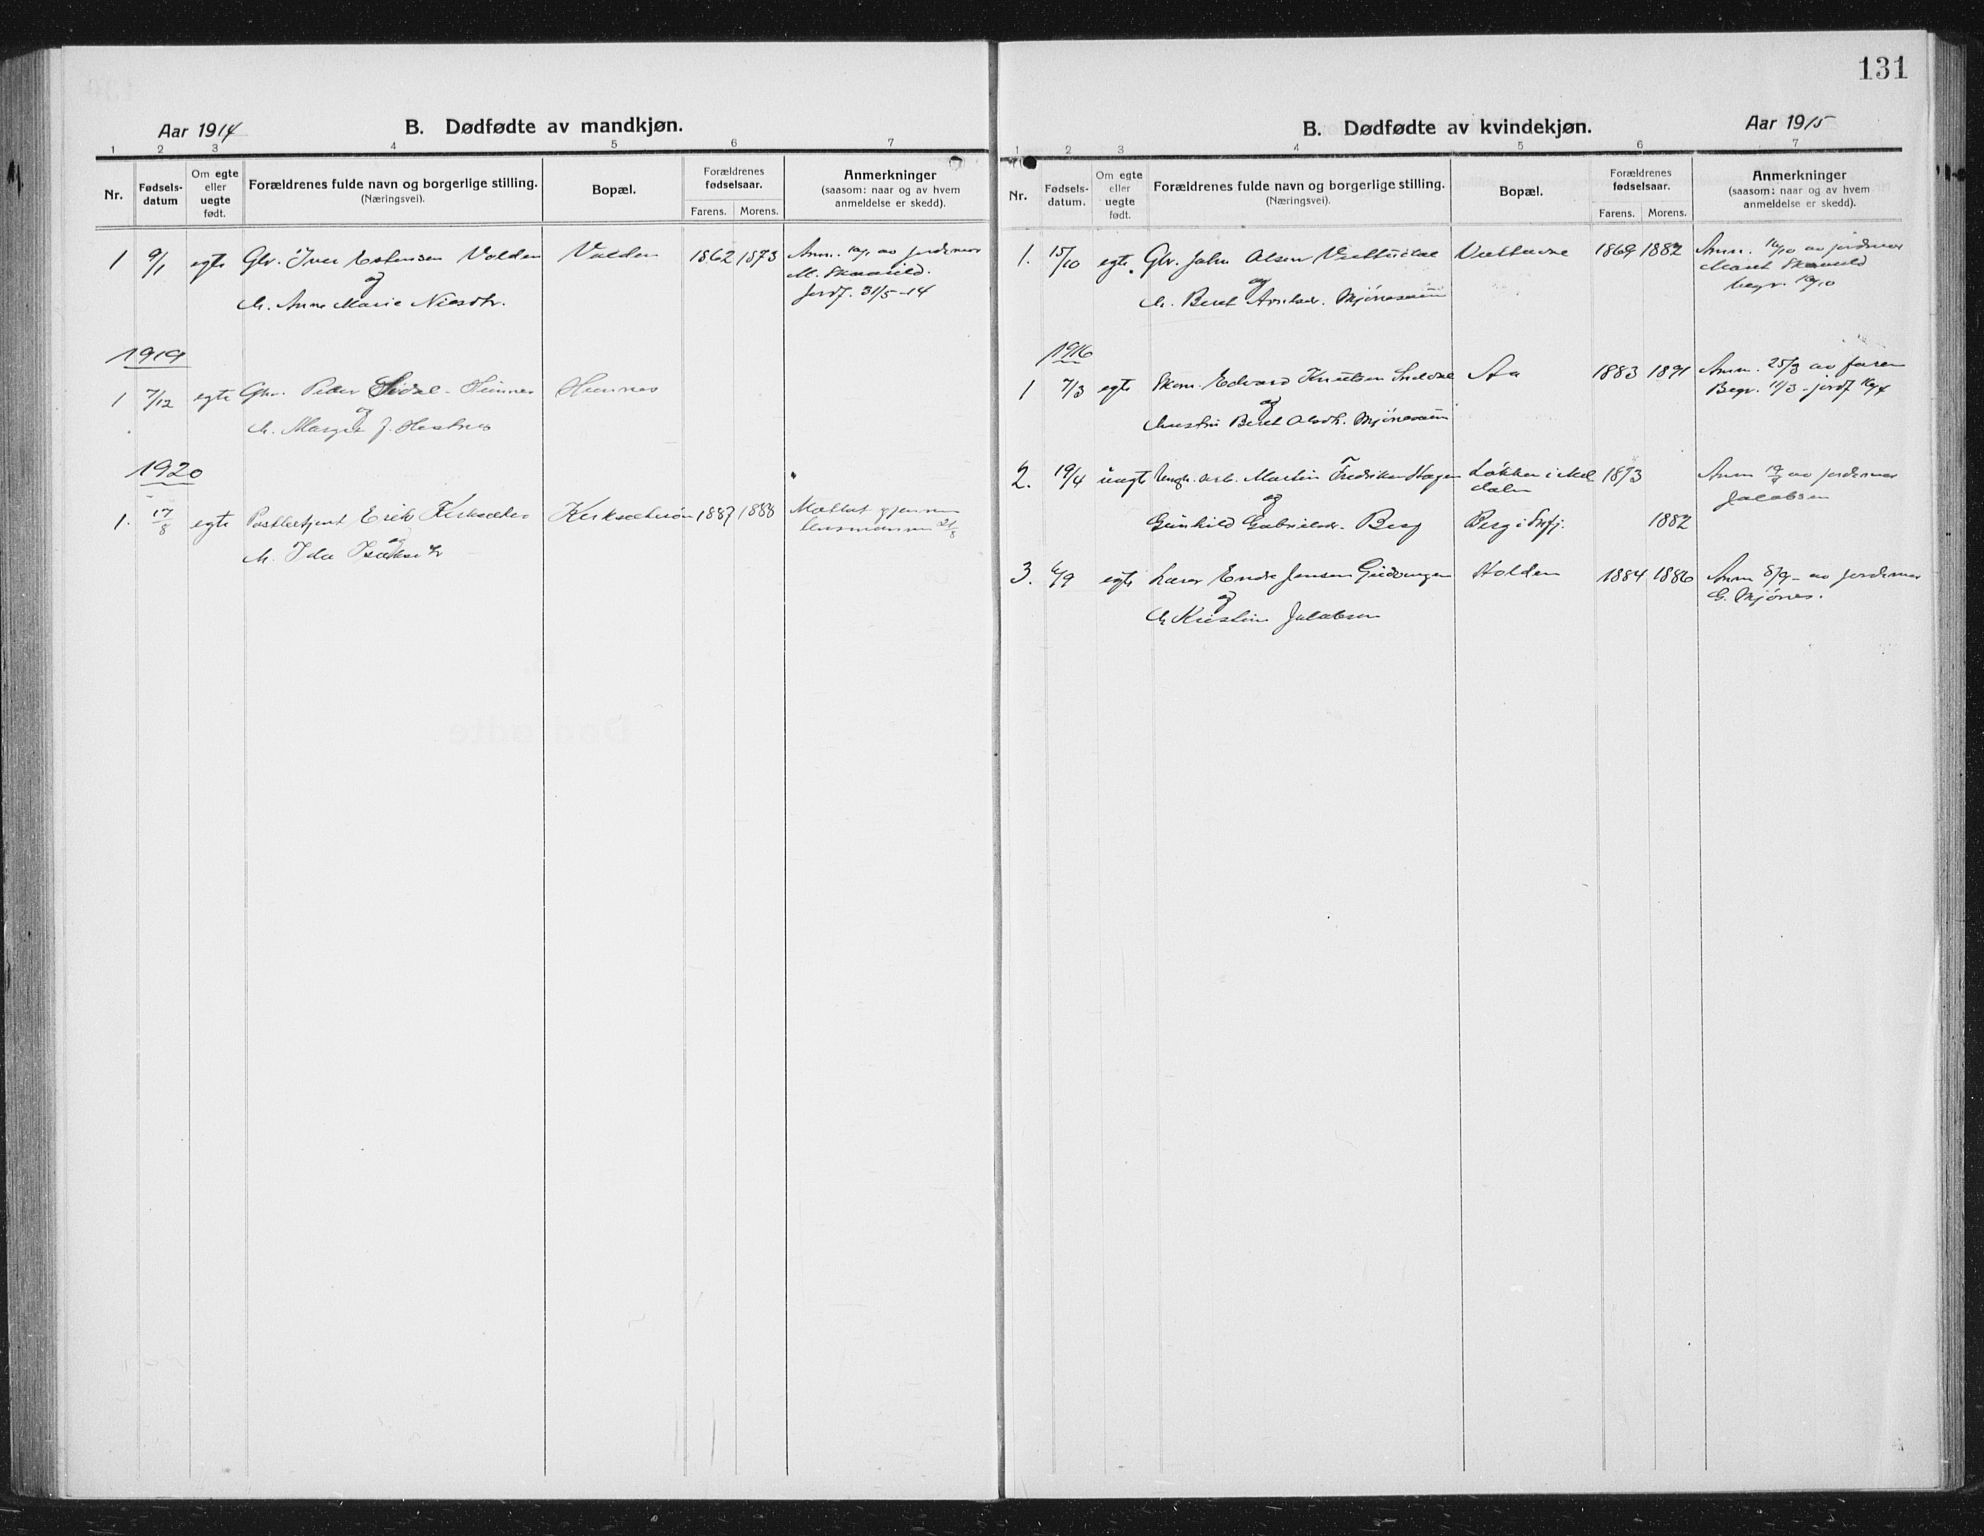 131
Aar 1914
B. Dødfødte av mandkjøn.
1 2 3 4 5 6 7
Nr.
Fødsels-
datum
Om egte
eller
uegte
født.
Forældrenes fulde navn og borgerlige stilling.
(Næringsvei).
Bopæl.
Forældrenes
fødselsaar.
Farens. Morens.
Anmerkninger
(saasom: naar og av hvem
anmeldelse er skedd).
1 9/1 egte Gbr. Iver Estensen Volden Volden 1862 1873 Anm. av jordmor
og M.
H. Anne Marie jordf. 31/5-14
1919
1 7/12 egte Gbr. Peder Hemnes
og
H. J. Hestnes
1920
1. 17/8 egte Erik Kirksæter Kirksæterøra 1887 1888 gjennem
og lensmannen 21/8
H. Ida
Aar 1915
B. Dødfødte av kvindekjøn.
1 2 3 4 5 6 7
Nr.
Fødsels-
datum.
Om egte
eller
uegte
født.
Forældrenes fulde navn og borgerlige stilling.
(Næringsvei).
Bopæl.
Forældrenes
fødselsaar.
Farens. Morens.
Anmerkninger
(saasom: naar og av hvem
anmeldelse er skedd).
1. 15/10 egte Gbr. John Olsen 1869 1882 Anm. 16/10 av jordmor
og Marit
H. Beret Mjønesaun begr.
1916
1 7/3 egte Skom. Edvard Knutsen Aa 1883 1891 Anm. 25/3 av faren
og Begr. 11/3 - jordf
hustru Beret Olsdtr. Mjønesaun
2. 19/4 uegte Ungk. arb. Martin Fredriksen Hagen Løkken i Mel 1873 Anm av jordmor
og dalen Jacobsen
Gunhild Gabrielsdr. Berg Berg i 1882
3. 6/9 egte Lærer Endre Jensen Gudvangen Holden 1884 1886 Anm 8/9 - av jordmor
og G. Mjønes.
H. Kristine Jacobsen